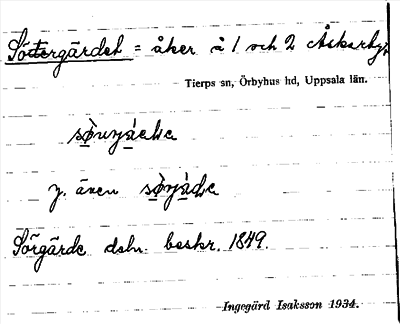 Södergärdet = åker å 1 och 2 Askarby,
Tierps sn, Örbyhus hd, Uppsala län.
y. även
Sörgärde dsn. beskr. 1849.
Ingegärd Isaksson 1934.